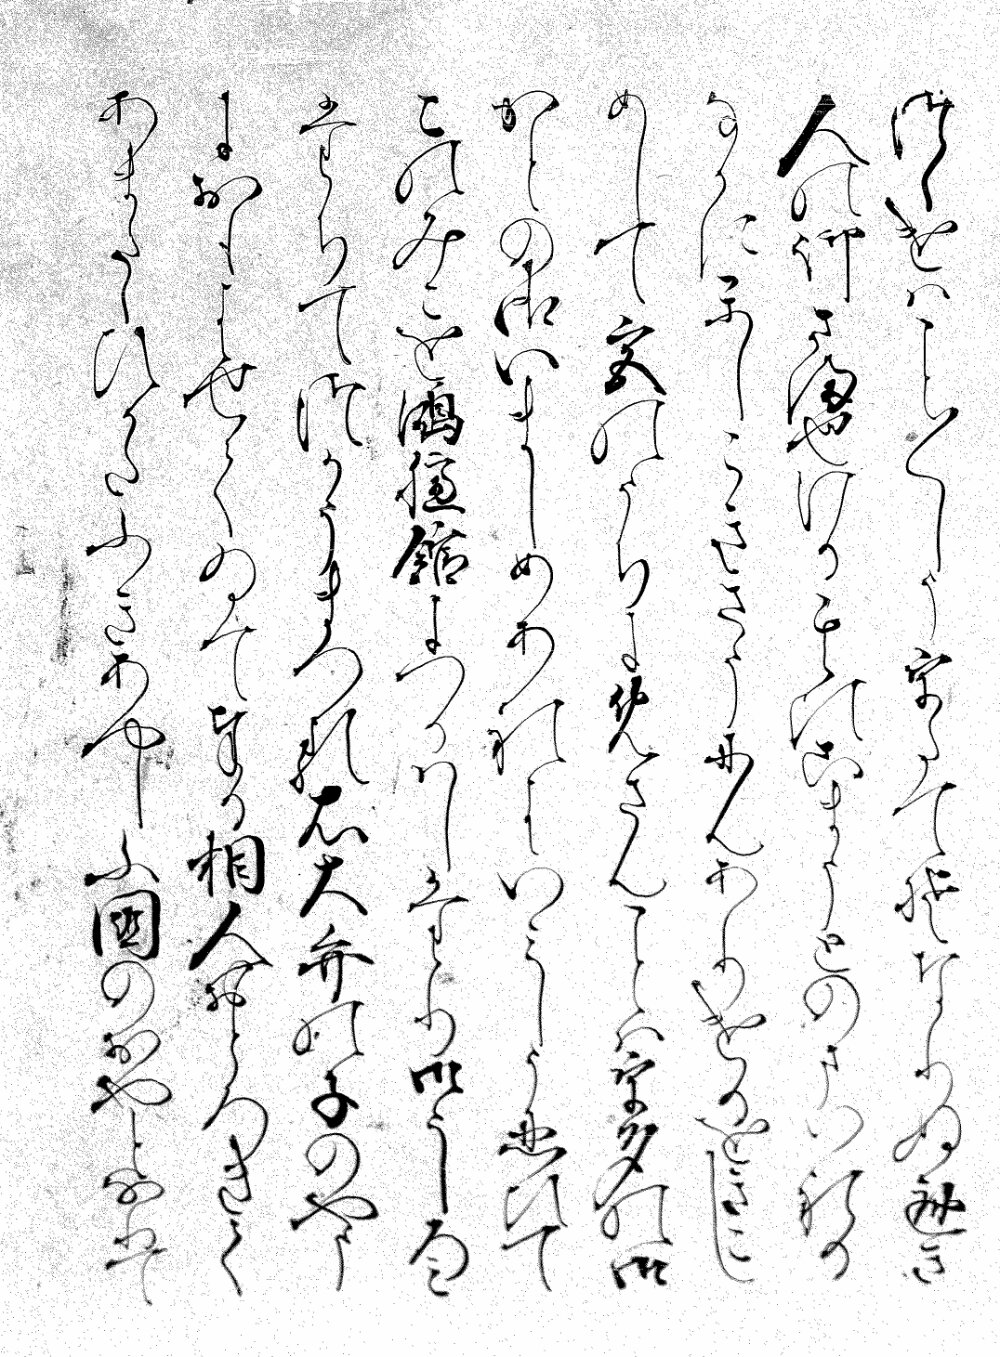 つゝけはこと/\しううたてそなりぬへき
人の御さま也けるそのころこまうとのまいれる
なかにかしこきさうにんありけるをきこし
めして宮のうちにめさんことは宇多の御
かとの御いましめあれはいみしう忍ひて
このみこを鴻臚館につかはしたり御うしろみ
たちてつかうまつる右大弁の子のやう
におもはせてゐて奉る相人おとろきて
あまたゝひかたふきあやしふ国のおやとなりて